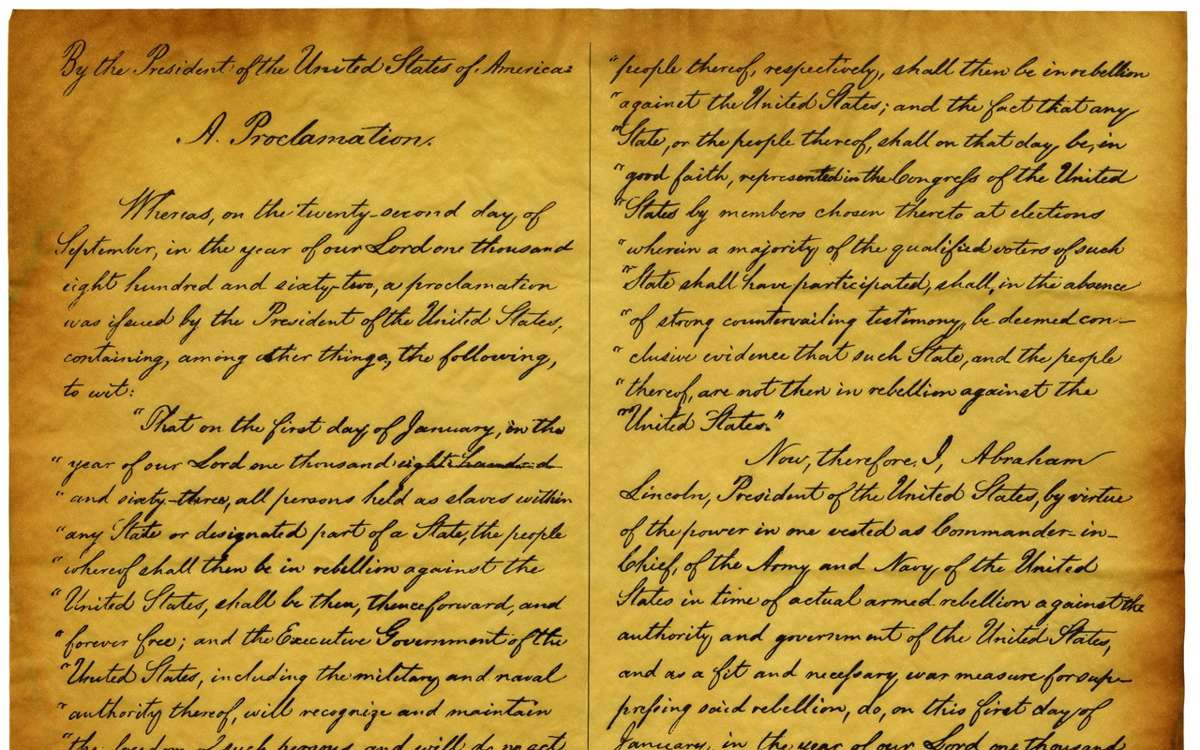 By the President of the United States of America:
A Proclamation.
Whereas, on the twenty-second day of
September, in the year of our Lord one thousand
eight hundred and sixty-two, a proclamation
was issued by the President of the United States,
containing, among other things, the following,
to wit:
"That on the first day of January, in the
"year of our Lord one thousand eight hundred
"and sixty-three, all persons held as slaves within
"any State or designated part of a State, the people
"whereof shall then be in rebellion against the
"United States, shall be then, thenceforward, and
"forever free; and the Executive Government of the
"United States, including the military and naval
"authority thereof, will recognize and maintain
"the freedom of such persons, and will do no act
"people thereof, respectively, shall then be in rebellion
"against the United States; and the fact that any
"State, or the people thereof, shall on that day be, in
"good faith, represented in the Congress of the United
"States by members chosen thereto at elections
"wherein a majority of the qualified voters of such
"State shall have participated, shall, in the absence
"of strong countervailing testimony, be deemed con-
"clusive evidence that such State, and the people
"thereof, are not then in rebellion against the
"United States."
Now, therefore, I, Abraham
Lincoln, President of the United States, by virtue
of the power in me vested as Commander-in-
Chief, of the Army and Navy of the United
States in time of actual armed rebellion against the
authority and government of the United States,
and as a fit and necessary war measure for sup-
pressing said rebellion, do, on this first day of
January, in the year of our Lord one thousand